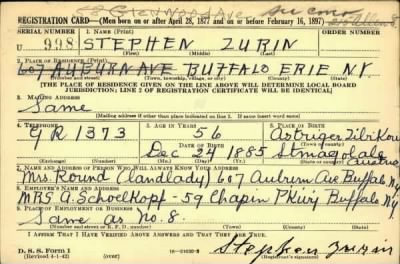 see over
REGISTRATION CARD—(Men born on or after April 28, 1877 and on or before February 16, 1897)
SERIAL NUMBER 1. NAME (Print)
U 998 STEPHEN ZURIN
(First) (Middle) (Last)
2. PLACE OF RESIDENCE (Print)
607 AUBURN AVE BUFFALO ERIE N.Y.
(Number and street) (Town, township, village, or city) (County) (State)
[THE PLACE OF RESIDENCE GIVEN ON THE LINE ABOVE WILL DETERMINE LOCAL BOARD
JURISDICTION; LINE 2 OF REGISTRATION CERTIFICATE WILL BE IDENTICAL]
3. MAILING ADDRESS
Same
[Mailing address if other than place indicated on line 2. If same insert word same]
4. TELEPHONE 5. AGE IN YEARS 6. PLACE OF BIRTH
GR 1373 56
DATE OF BIRTH (Town or county)
Dec 24 1885 Austria
(Exchange) (Number) (Mo.) (Day) (Yr.) (State or country)
7. NAME AND ADDRESS OF PERSON WHO WILL ALWAYS KNOW YOUR ADDRESS
Mrs Round (landlady) 607 Auburn Ave Buffalo N.Y.
8. EMPLOYER'S NAME AND ADDRESS
MRS A. Schoelkopf - 59 Chapin Pkwy Buffalo N.Y.
9. PLACE OF EMPLOYMENT OR BUSINESS
Same as no. 8.
(Number and street or R. F. D. number) (Town) (County) (State)
I AFFIRM THAT I HAVE VERIFIED ABOVE ANSWERS AND THAT THEY ARE TRUE.
D. S. S. Form 1
(Revised 4-1-42) (over) Stephen Zurin
(Registrant's signature)